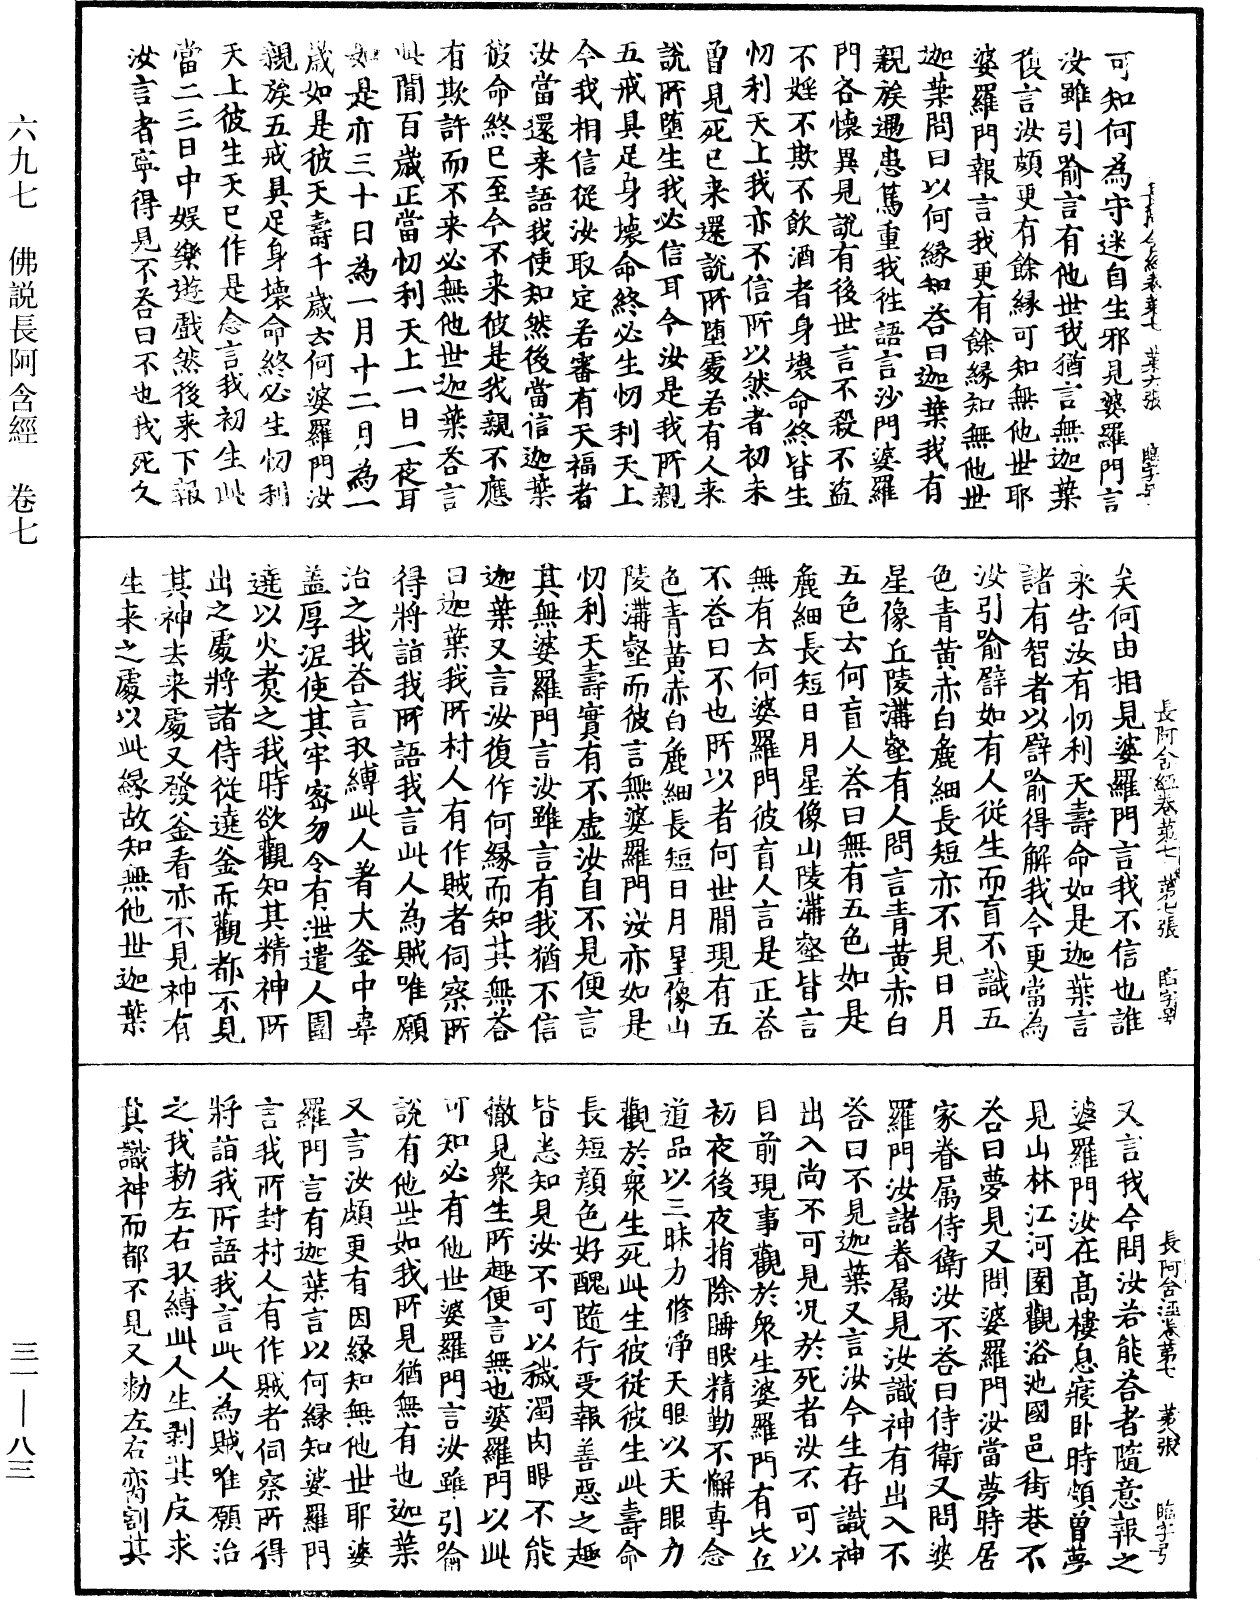 六九七　佛説長阿含經　卷七
三一—八三
長阿含經卷第七　第六張　臨字号
可知何為守迷自生邪見婆羅門言
汝雖引喻言有他世我猶言無迦葉
復言汝頗更有餘緣可知無他世耶
婆羅門報言我更有餘緣知無他世
迦葉問曰以何緣知荅曰迦葉我有
親族遇患篤重我往語言沙門婆羅
門各懷異見說有後世言不殺不盜
不婬不欺不飲酒者身壞命終皆生
忉利天上我亦不信所以然者初未
曾見死已来還說所墮處若有人来
說所墮生我必信耳今汝是我所親
五戒具足身壞命終必生忉利天上
今我相信從汝取定若審有天福者
汝當還来語我使知然後當信迦葉
彼命終已至今不来彼是我親不應
有欺許而不来必無他世迦葉荅言
此間百歲正當忉利天上一日一夜耳
如是亦三十日為一月十二月為一
歲如是彼天壽千歲云何婆羅門汝
親族五戒具足身壞命終必生忉利
天上彼生天已作是念言我初生此
當二三日中娛樂遊戲然後来下報
汝言者寧得見不荅曰不也我死久
長阿含經卷第七　第七張　臨字号
矣何由相見婆羅門言我不信也誰
来告汝有忉利天壽命如是迦葉言
諸有智者以譬喻得解我今更當為
汝引喻譬如有人從生而盲不識五
色青黃赤白麁細長短亦不見日月
星像丘陵溝壑有人問言青黃赤白
五色云何盲人荅曰無有五色如是
麁細長短日月星像山陵溝壑皆言
無有云何婆羅門彼盲人言是正荅
不荅曰不也所以者何世間現有五
色青黃赤白麁細長短日月星像山
陵溝壑而彼言無婆羅門汝亦如是
忉利天壽實有不虛汝自不見便言
其無婆羅門言汝雖言有我猶不信
迦葉又言汝復作何緣而知其無荅
曰迦葉我所村人有作賊者伺察所
得將詣我所語我言此人為賊唯願
治之我荅言収縛此人著大釜中韋
盖厚泥使其牢密勿令有泄遣人圍
遶以火煑之我時欲觀知其精神所
出之處將諸侍從遶釜而觀都不見
其神去来處又發釜看亦不見神有
生来之處以此緣故知無他世迦葉
長阿含經卷第七　第八張　臨字号
又言我今問汝若能荅者隨意報之
婆羅門汝在高樓息寢卧時頗曾夢
見山林江河園觀浴池國邑街巷不
荅曰夢見又問婆羅門汝當夢時居
家眷属侍衛汝不荅曰侍衛又問婆
羅門汝諸眷属見汝識神有出入不
荅曰不見迦葉又言汝今生存識神
出入尚不可見況於死者汝不可以
目前現事觀於衆生婆羅門有比丘
初夜後夜捐除睡眠精勤不懈專念
道品以三昧力修淨天眼以天眼力
觀於衆生死此生彼從彼生此壽命
長短顔色好醜隨行受報善惡之趣
皆悉知見汝不可以穢濁肉眼不能
徹見衆生所趣便言無也婆羅門以此
可知必有他世婆羅門言汝雖引喻
說有他世如我所見猶無有也迦葉
又言汝頗更有因緣知無他世耶婆
羅門言有迦葉言以何緣知婆羅門
言我所封村人有作賊者伺察所得
將詣我所語我言此人為賊唯願治
之我勅左右収縛此人生剥其皮求
其識神而都不見又勅左右臠割其